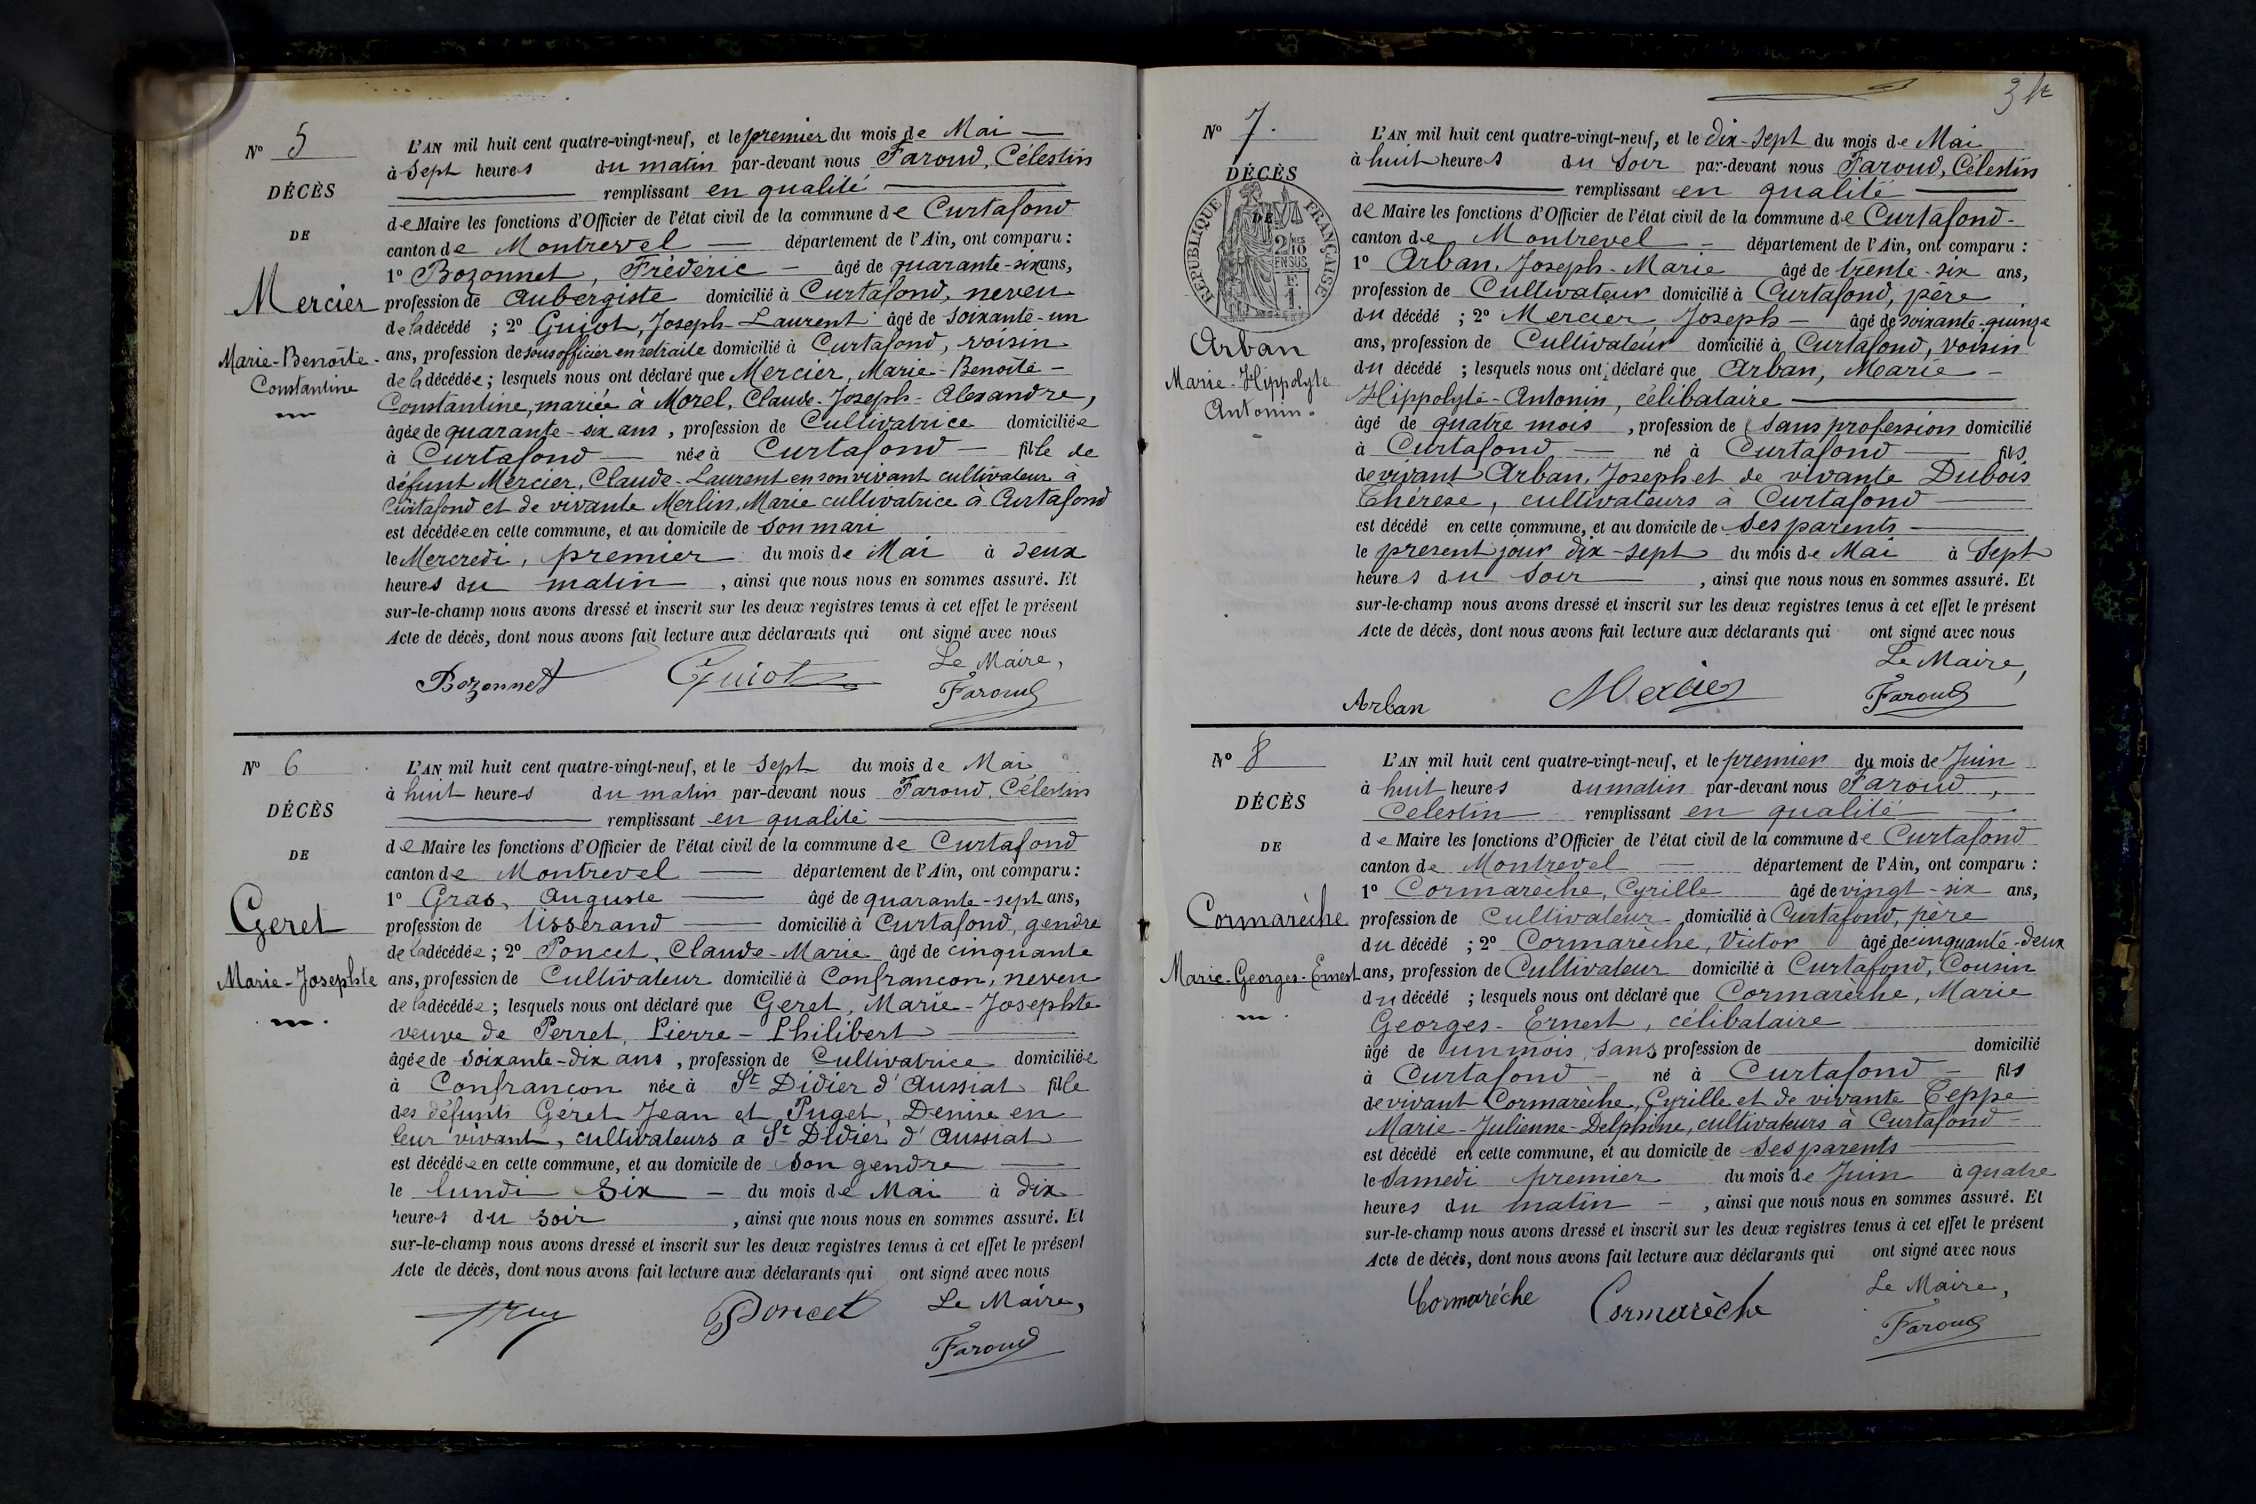 N° 5
DÉCÈS
DE
Mercier
Marie-Benoîte-
Constantine
L'AN mil huit cent quatre-vingt-neuf, et le premier du mois de Mai
à sept heures du matin par-devant nous Faroud, Célestin
remplissant en qualité
de Maire les fonctions d'Officier de l'état civil de la commune de Curtafond
canton de Montrevel département de l'Ain, ont comparu :
1° Bozonnet, Frédéric âgé de quarante-six ans,
profession de aubergiste domicilié à Curtafond, neveu
de la décédé ; 2° Guiot, Joseph-Laurent âgé de soixante-un
ans, profession de sous officier en retraite domicilié à Curtafond, voisin
de la décédée ; lesquels nous ont déclaré que Mercier, Marie-Benoîte-
Constantine, mariée à Morel, Claude-Joseph-Alexandre,
âgée de quarante-six ans, profession de Cultivatrice domiciliée
à Curtafond née à Curtafond fille de
défunt Mercier, Claude-Laurent en son vivant cultivateur à
Curtafond et de vivante Merlin, Marie cultivatrice à Curtafond
est décédée en cette commune, et au domicile de son mari
le Mercredi, premier du mois de Mai à deux
heures du matin, ainsi que nous nous en sommes assuré. Et
sur-le-champ nous avons dressé et inscrit sur les deux registres tenus à cet effet le présent
Acte de décès, dont nous avons fait lecture aux déclarants qui ont signé avec nous
Le Maire,
Bozonnet Guiot Faroud
N° 6
DÉCÈS
DE
Geret
Marie-Josephte
L'AN mil huit cent quatre-vingt-neuf, et le sept du mois de Mai
à huit heures du matin par-devant nous Faroud, Célestin
remplissant en qualité
de Maire les fonctions d'Officier de l'état civil de la commune de Curtafond
canton de Montrevel département de l'Ain, ont comparu :
1° Gras, Auguste âgé de quarante-sept ans,
profession de tisserand domicilié à Curtafond, gendre
de la décédée ; 2° Poncet, Claude-Marie âgé de cinquante
ans, profession de Cultivateur domicilié à Confrançon, neveu
de la décédée ; lesquels nous ont déclaré que Geret, Marie-Josephte
veuve de Perret, Pierre-Philibert
âgée de soixante-dix ans, profession de Cultivatrice domiciliée
à Confrançon née à St Didier d'Aussiat fille
des défunts Géret Jean et Puget, Denise en
leur vivant, cultivateurs à St Didier d'Aussiat
est décédée en cette commune, et au domicile de son gendre
le lundi six du mois de Mai à dix
heures du soir, ainsi que nous nous en sommes assuré. Et
sur-le-champ nous avons dressé et inscrit sur les deux registres tenus à cet effet le présent
Acte de décès, dont nous avons fait lecture aux déclarants qui ont signé avec nous
Le Maire,
Poncet Faroud
N° 7.
DÉCÈS
DE
RÉPUBLIQUE FRANÇAISE
2/10 EN SUS
Arban
Marie-Hippolyte
Antonin
L'AN mil huit cent quatre-vingt-neuf, et le dix-sept du mois de Mai
à huit heures du soir par-devant nous Faroud, Célestin
remplissant en qualité
de Maire les fonctions d'Officier de l'état civil de la commune de Curtafond-
canton de Montrevel département de l'Ain, ont comparu :
1° Arban, Joseph-Marie âgé de trente-six ans,
profession de Cultivateur domicilié à Curtafond, père
du décédé ; 2° Mercier, Joseph âgé de soixante-quinze
ans, profession de Cultivateur domicilié à Curtafond, voisin
du décédé ; lesquels nous ont déclaré que Arban, Marie-
Hippolyte-Antonin, célibataire
âgé de quatre mois, profession de sans profession domicilié
à Curtafond né à Curtafond fils
de vivant Arban, Joseph et de vivante Dubois
Thérèse, cultivateurs à Curtafond
est décédé en cette commune, et au domicile de ses parents
le présent jour dix-sept du mois de Mai à sept
heures du soir, ainsi que nous nous en sommes assuré. Et
sur-le-champ nous avons dressé et inscrit sur les deux registres tenus à cet effet le présent
Acte de décès, dont nous avons fait lecture aux déclarants qui ont signé avec nous
Le Maire,
Arban Mercier Faroud
N° 8
DÉCÈS
DE
Cormarèche
Marie-Georges-Ernest
L'AN mil huit cent quatre-vingt-neuf, et le premier du mois de Juin
à huit heures du matin par-devant nous Faroud,
Celestin remplissant en qualité
de Maire les fonctions d'Officier de l'état civil de la commune de Curtafond
canton de Montrevel département de l'Ain, ont comparu :
1° Cormarèche, Cyrille âgé de vingt-six ans,
profession de Cultivateur domicilié à Curtafond, père
du décédé ; 2° Cormarèche, Victor âgé de cinquante-deux
ans, profession de Cultivateur domicilié à Curtafond, Cousin
du décédé ; lesquels nous ont déclaré que Cormarèche, Marie
Georges-Ernest, célibataire
âgé de un mois, sans profession de domicilié
à Curtafond né à Curtafond fils
de vivant Cormarèche, Cyrille et de vivante Teppe
Marie-Julienne-Delphine, cultivateurs à Curtafond
est décédé en cette commune, et au domicile de ses parents
le Samedi premier du mois de Juin à quatre
heures du matin, ainsi que nous nous en sommes assuré. Et
sur-le-champ nous avons dressé et inscrit sur les deux registres tenus à cet effet le présent
Acte de décès, dont nous avons fait lecture aux déclarants qui ont signé avec nous
Le Maire,
Cormarèche Cormarèche Faroud